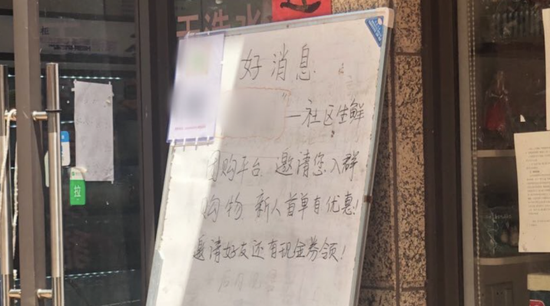 好消息
一社区生鲜
团购平台 邀请您入群
购物 新人首单有优惠!
邀请好友还有现金券领!
拉